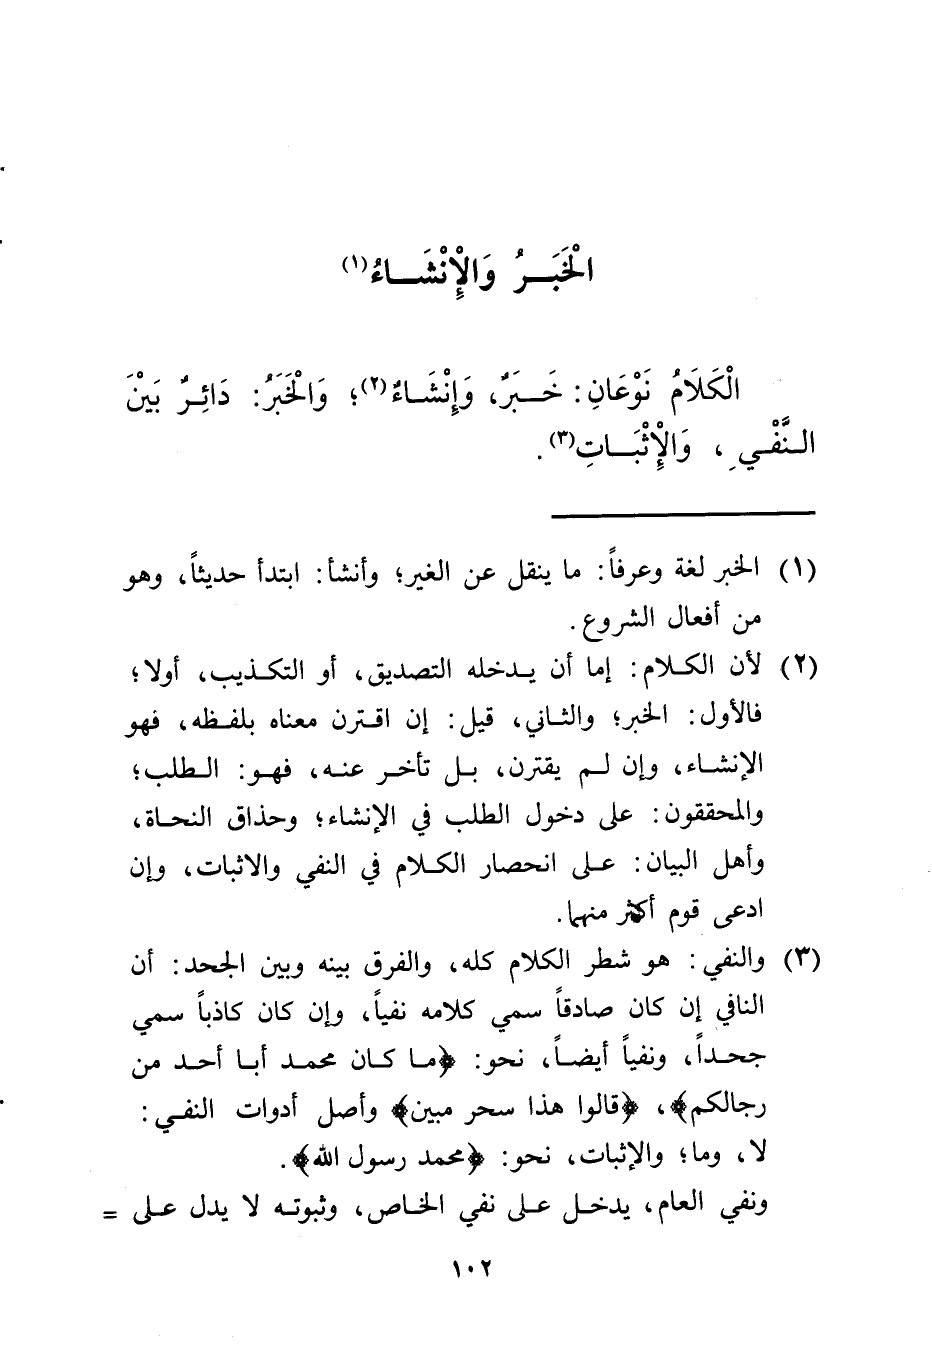 الْخَبَرُ وَالْإِنْشَاءُ(١)
الْكَلَامُ نَوْعَانِ: خَبَرٌ، وَإِنْشَاءٌ(٢)؛ وَالْخَبَرُ: دَائِرٌ بَيْنَ
النَّفْيِ ، وَالْإِثْبَاتِ(٣).
(١) الخبر لغة وعرفاً: ما ينقل عن الغير؛ وأنشأ: ابتدأ حديثاً، وهو
من أفعال الشروع.
(٢) لأن الكلام: إما أن يدخله التصديق، أو التكذيب، أولا؛
فالأول: الخبر؛ والثاني، قيل: إن اقترن معناه بلفظه، فهو
الإنشاء، وإن لم يقترن، بل تأخر عنه، فهو: الطلب؛
والمحققون: على دخول الطلب في الإنشاء؛ وحذاق النحاة،
وأهل البيان: على انحصار الكلام في النفي والاثبات، وإن
ادعى قوم أكثر منهما.
(٣) والنفي: هو شطر الكلام كله، والفرق بينه وبين الجحد: أن
النافي إن كان صادقاً سمي كلامه نفياً، وإن كان كاذباً سمي
جحداً، ونفياً أيضاً، نحو: ﴿ما كان محمد أبا أحد من
رجالكم﴾، ﴿قالوا هذا سحر مبين﴾ وأصل أدوات النفي:
لا، وما؛ والإثبات، نحو: ﴿محمد رسول الله﴾.
ونفي العام، يدخل على نفي الخاص، وثبوته لا يدل على =
١٠٢